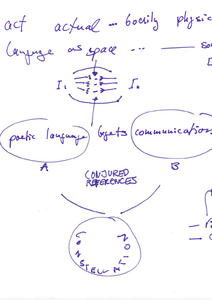 act actual -- bodily physic
language as space --
I₁
poetic language begets communication
A B
CONJURED
REFERENCES
CONSTELLATION